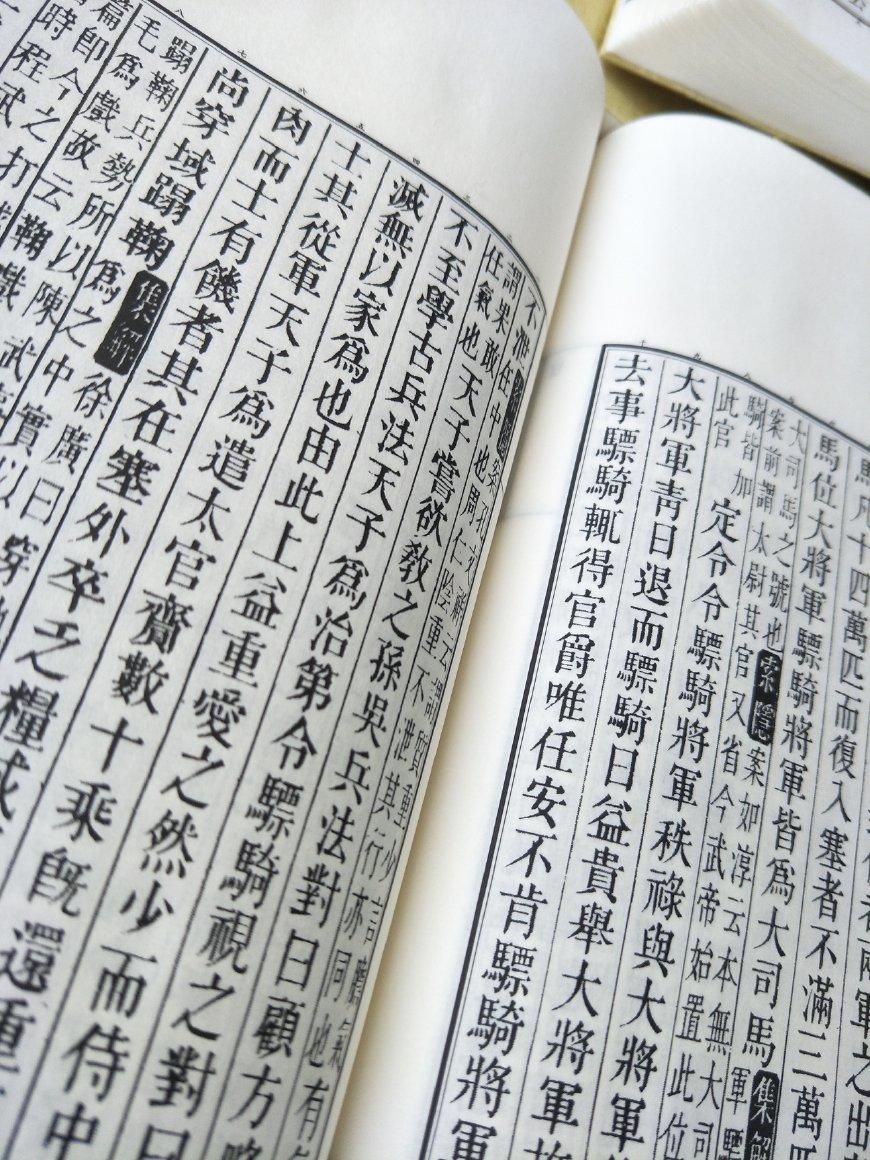 者兩軍之出
馬凡十四萬匹而復入塞者不滿三萬匹
馬位大將軍驃騎將軍皆爲大司馬集解
大司馬之號也索隱案如淳云本無大司
案前謂太尉其官又省今武帝始置此位
騎皆加
此官
定令令驃騎將軍秩祿與大將軍
大將軍青日退而驃騎日益貴舉大將軍故
去事驃騎輒得官爵唯任安不肯驃騎將軍
不泄索隱案孔文祥云謂質重少言膽氣
謂果敢任中也周仁陰重不泄其行亦同也有
任氣也天子嘗欲敎之孫吳兵法對曰顧方略
不至學古兵法天子爲治第令驃騎視之對曰
滅無以家爲也由此上益重愛之然少而侍中
士其從軍天子爲遣太官齎數十乘旣還重
肉而士有饑者其在塞外卒乏糧或
尚穿域蹋鞠集解徐廣曰穿地
蹋鞠兵勢所以陳武實以
毛爲戲故云爲之中
篇卽今之打鞠戲武
時程武